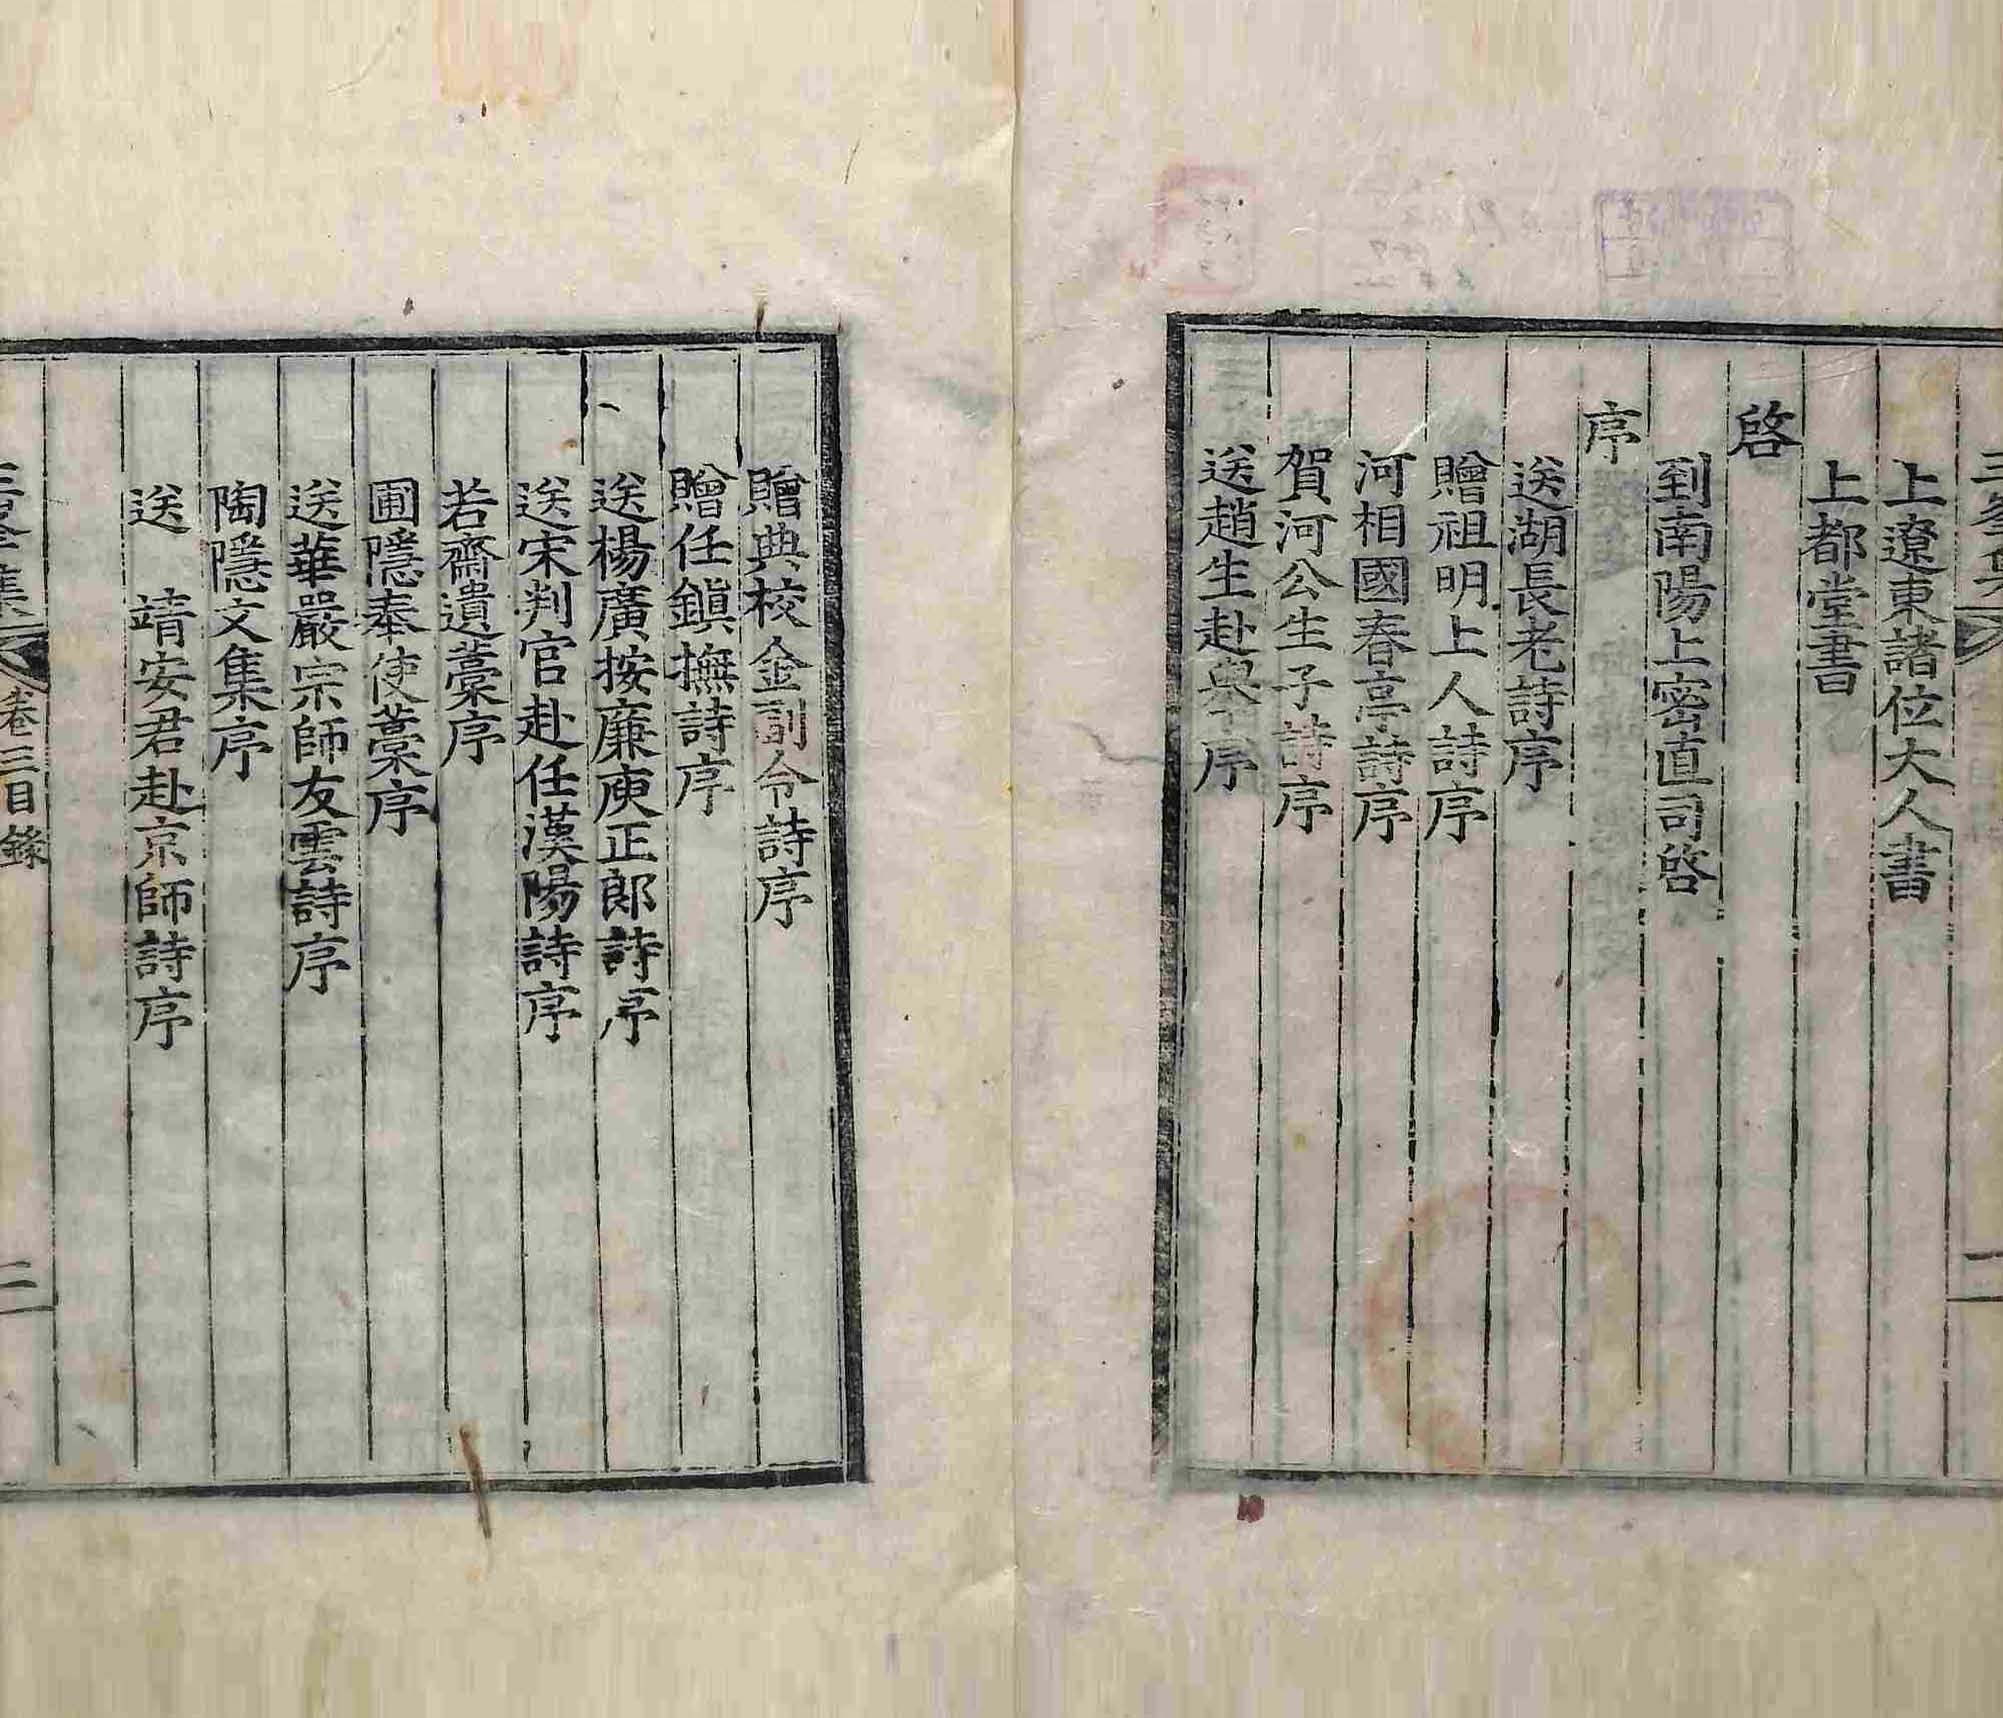 上遼東諸位大人書
上都堂書
啓
到南陽上密直司啓
序
送湖長老詩序
贈祖明上人詩序
河相國春亭詩序
賀河公生子詩序
送趙生赴舉序
贈典校金副令詩序
贈任鎭撫詩序
送楊廣按廉庾正郎詩序
送宋判官赴任漢陽詩序
若齋遺藁序
圃隱奉使藁序
送華嚴宗師友雲詩序
陶隱文集序
送 靖安君赴京師詩序
三峯集 卷三目錄 三